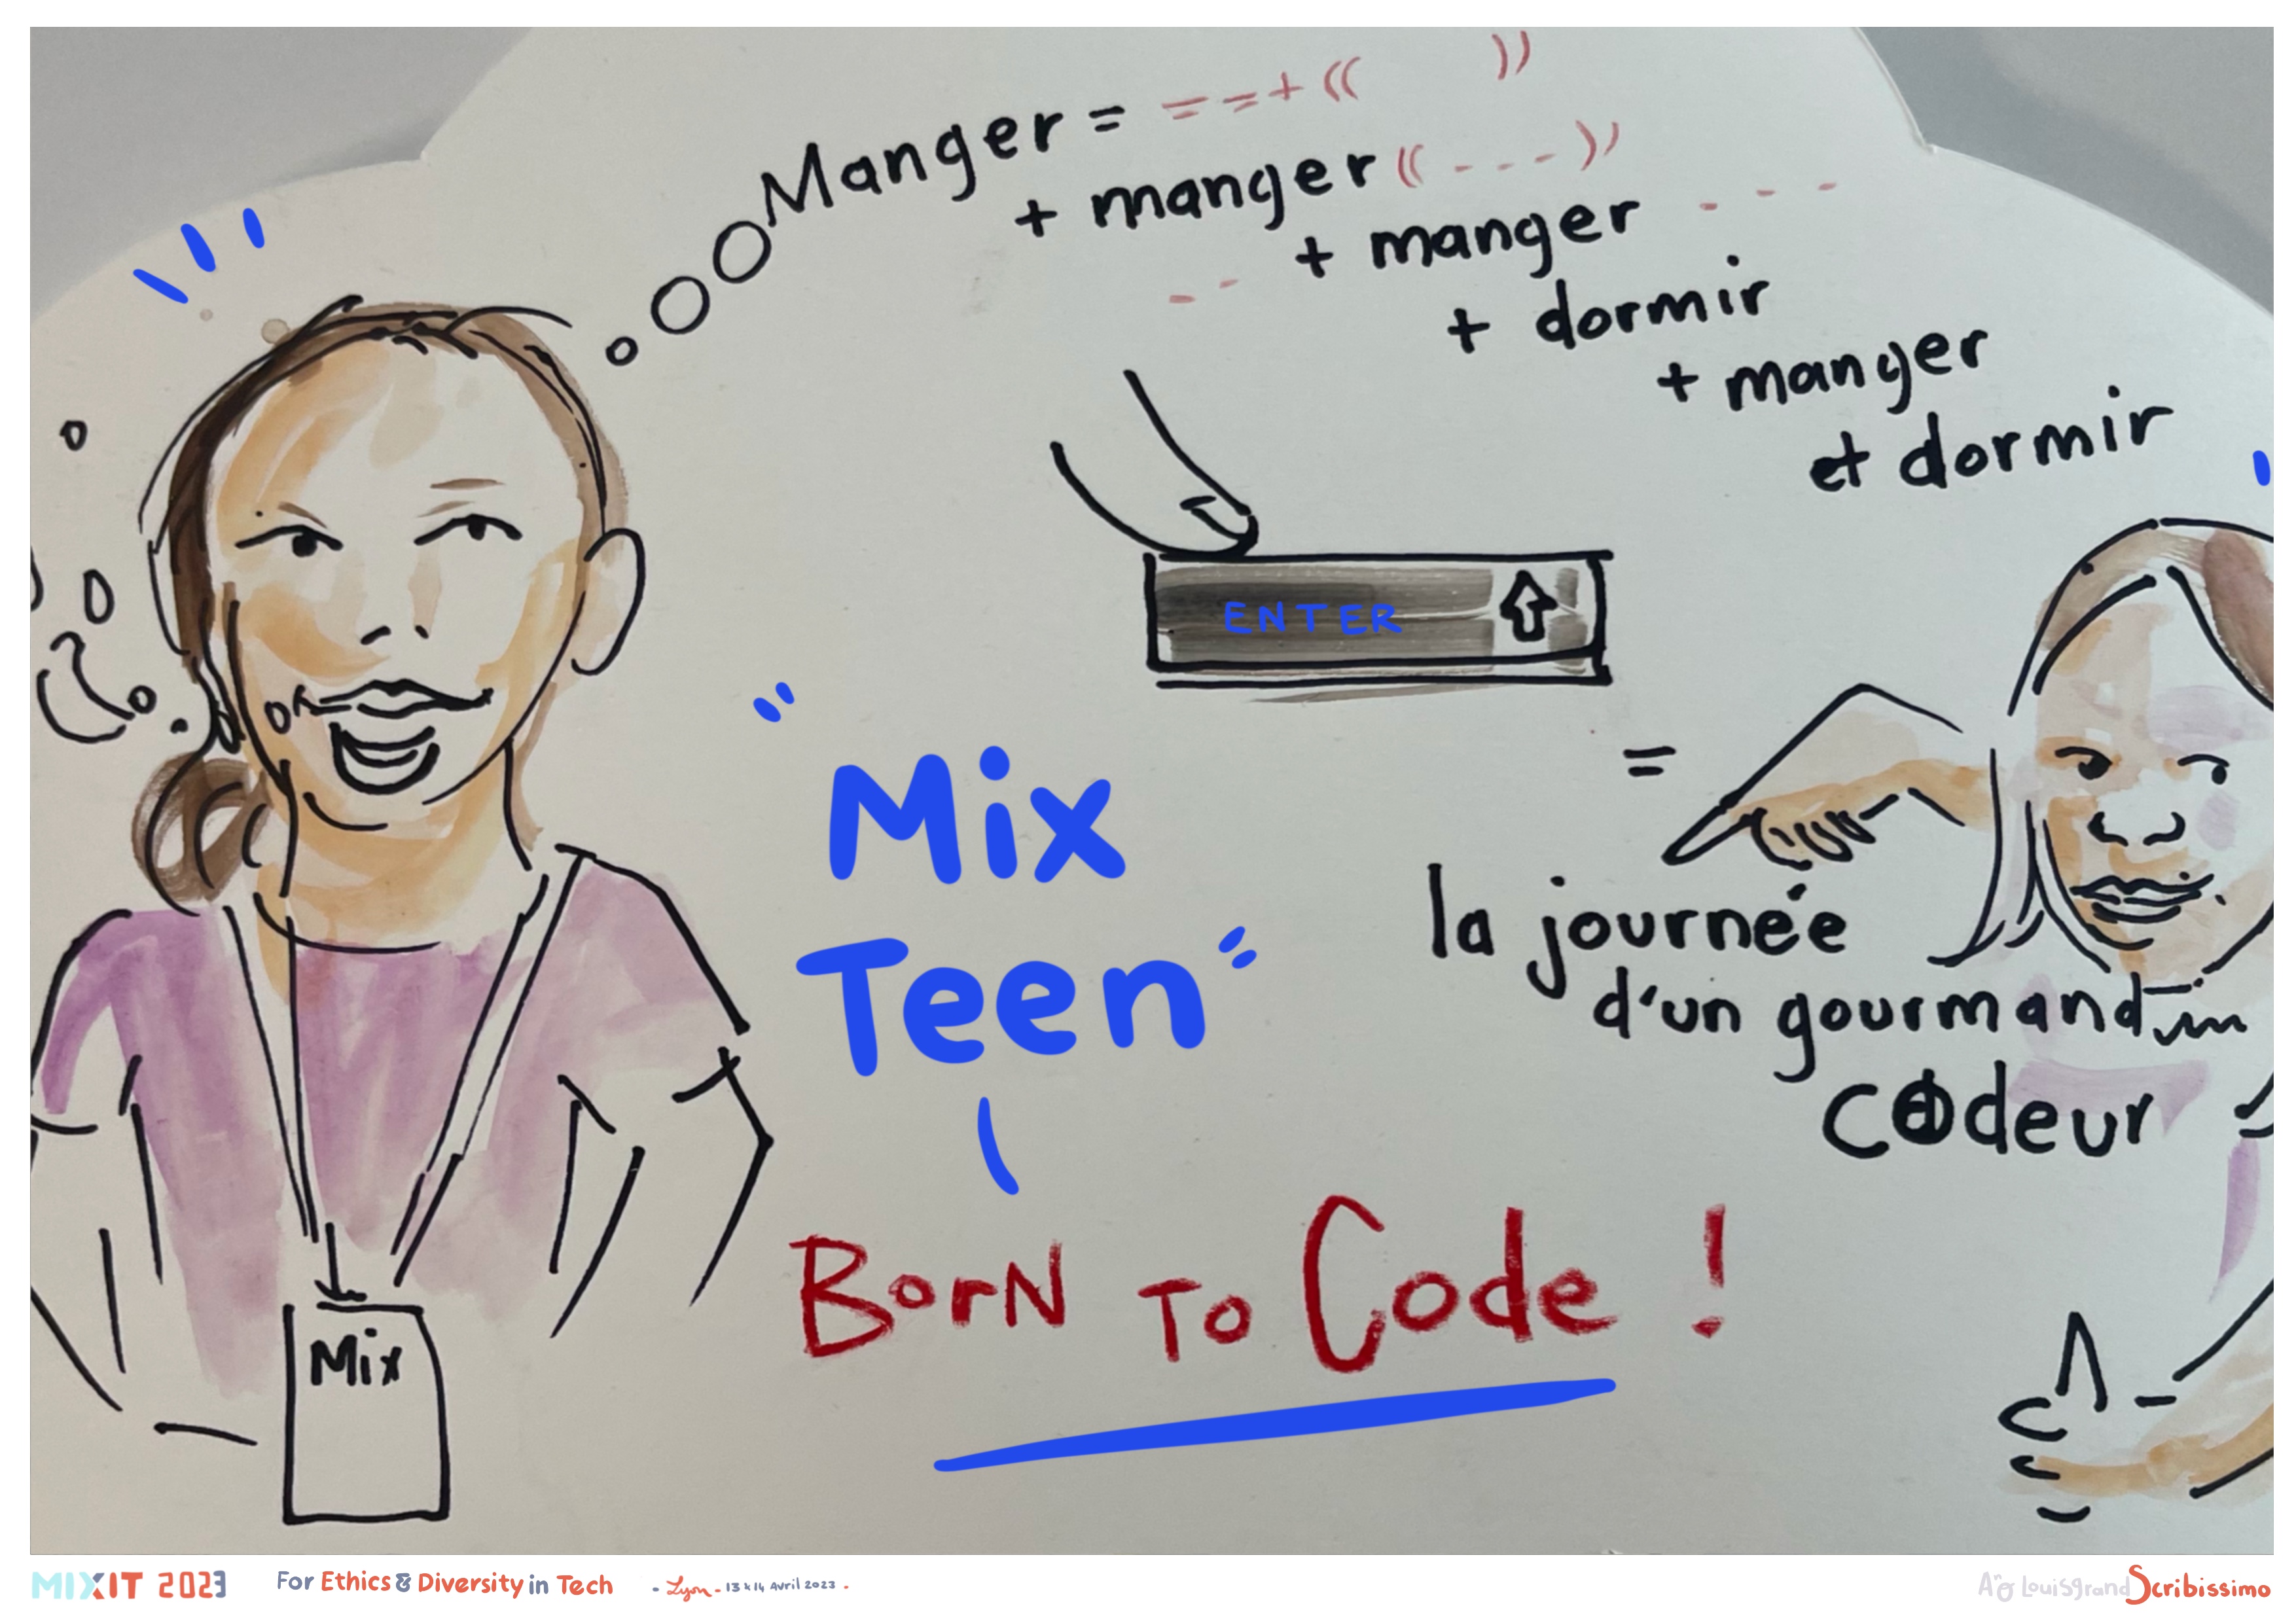 Manger = = = + (( ))
+ manger (( - - - ))
+ manger - - -
- - + dormir
+ manger
et dormir
ENTER
=
"Mix
Teen"
la journée
d'un gourmand
codeur
Born To Code !
Mix
MIXIT 2023 For Ethics & Diversity in Tech - Lyon - 13 & 14 Avril 2023 - Louisgrand Scribissimo